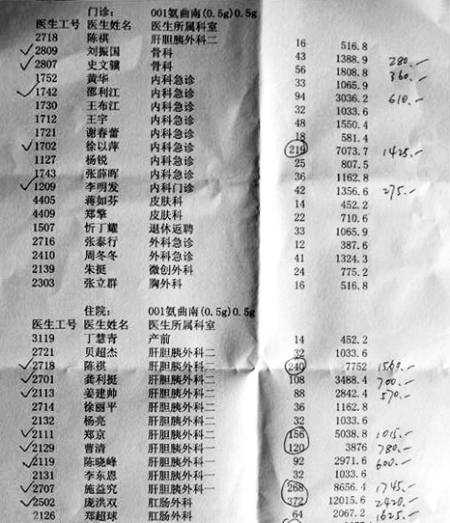 门诊: 001氨曲南(0.5g)0.5g
医生工号 医生姓名 医生所属科室
2718 陈祺 肝胆胰外科二 16 516.8
2809 刘振国 骨科 43 1388.9 280.-
2807 史文骥 骨科 56 1808.8 360.-
1752 黄华 内科急诊 33 1065.9
1742 邵利江 内科急诊 94 3036.2 610.-
1730 王布江 内科急诊 32 1033.6
1712 王宇 内科急诊 48 1550.4
1721 谢春蕾 内科急诊 18 581.4
1702 徐以萍 内科急诊 219 7073.7 1425.-
1127 杨锐 内科急诊 25 807.5
1743 张薛晖 内科急诊 36 1162.8
1209 李明发 内科门诊 42 1356.6 275.-
4405 蒋如芬 皮肤科 14 452.2
4409 郑擎 皮肤科 22 710.6
1507 忻丁耀 退休返聘 33 1065.9
2716 张泰行 外科急诊 12 387.6
2410 周冬冬 外科急诊 41 1324.3
2139 朱挺 微创外科 24 775.2
2303 张立群 胸外科 16 516.8
住院: 001氨曲南(0.5g)0.5g
医生工号 医生姓名 医生所属科室
3119 丁慧青 产前 14 452.2
2721 贝超杰 肝胆胰外科二 32 1033.6
2718 陈祺 肝胆胰外科二 240 7752 1560.-
2701 龚利挺 肝胆胰外科二 108 3488.4 700.-
2113 姜建帅 肝胆胰外科二 88 2842.4 570.-
2714 徐丽平 肝胆胰外科二 36 1162.8
2132 杨亮 肝胆胰外科二 32 1033.6
2111 郑京 肝胆胰外科二 156 5038.8 1015.-
2129 曹清 肝胆胰外科二 120 3876 780.-
2119 陈晓峰 肝胆胰外科二 92 2971.6 600.-
2131 李东恩 肝胆胰外科二 32 1033.6
2707 施益究 肝胆胰外科二 268 8656.4 1745.-
2502 庞洪双 肛肠外科 372 12015.6 2420.-
2126 郑超球 肛肠外科 64 2067.2 1625.-